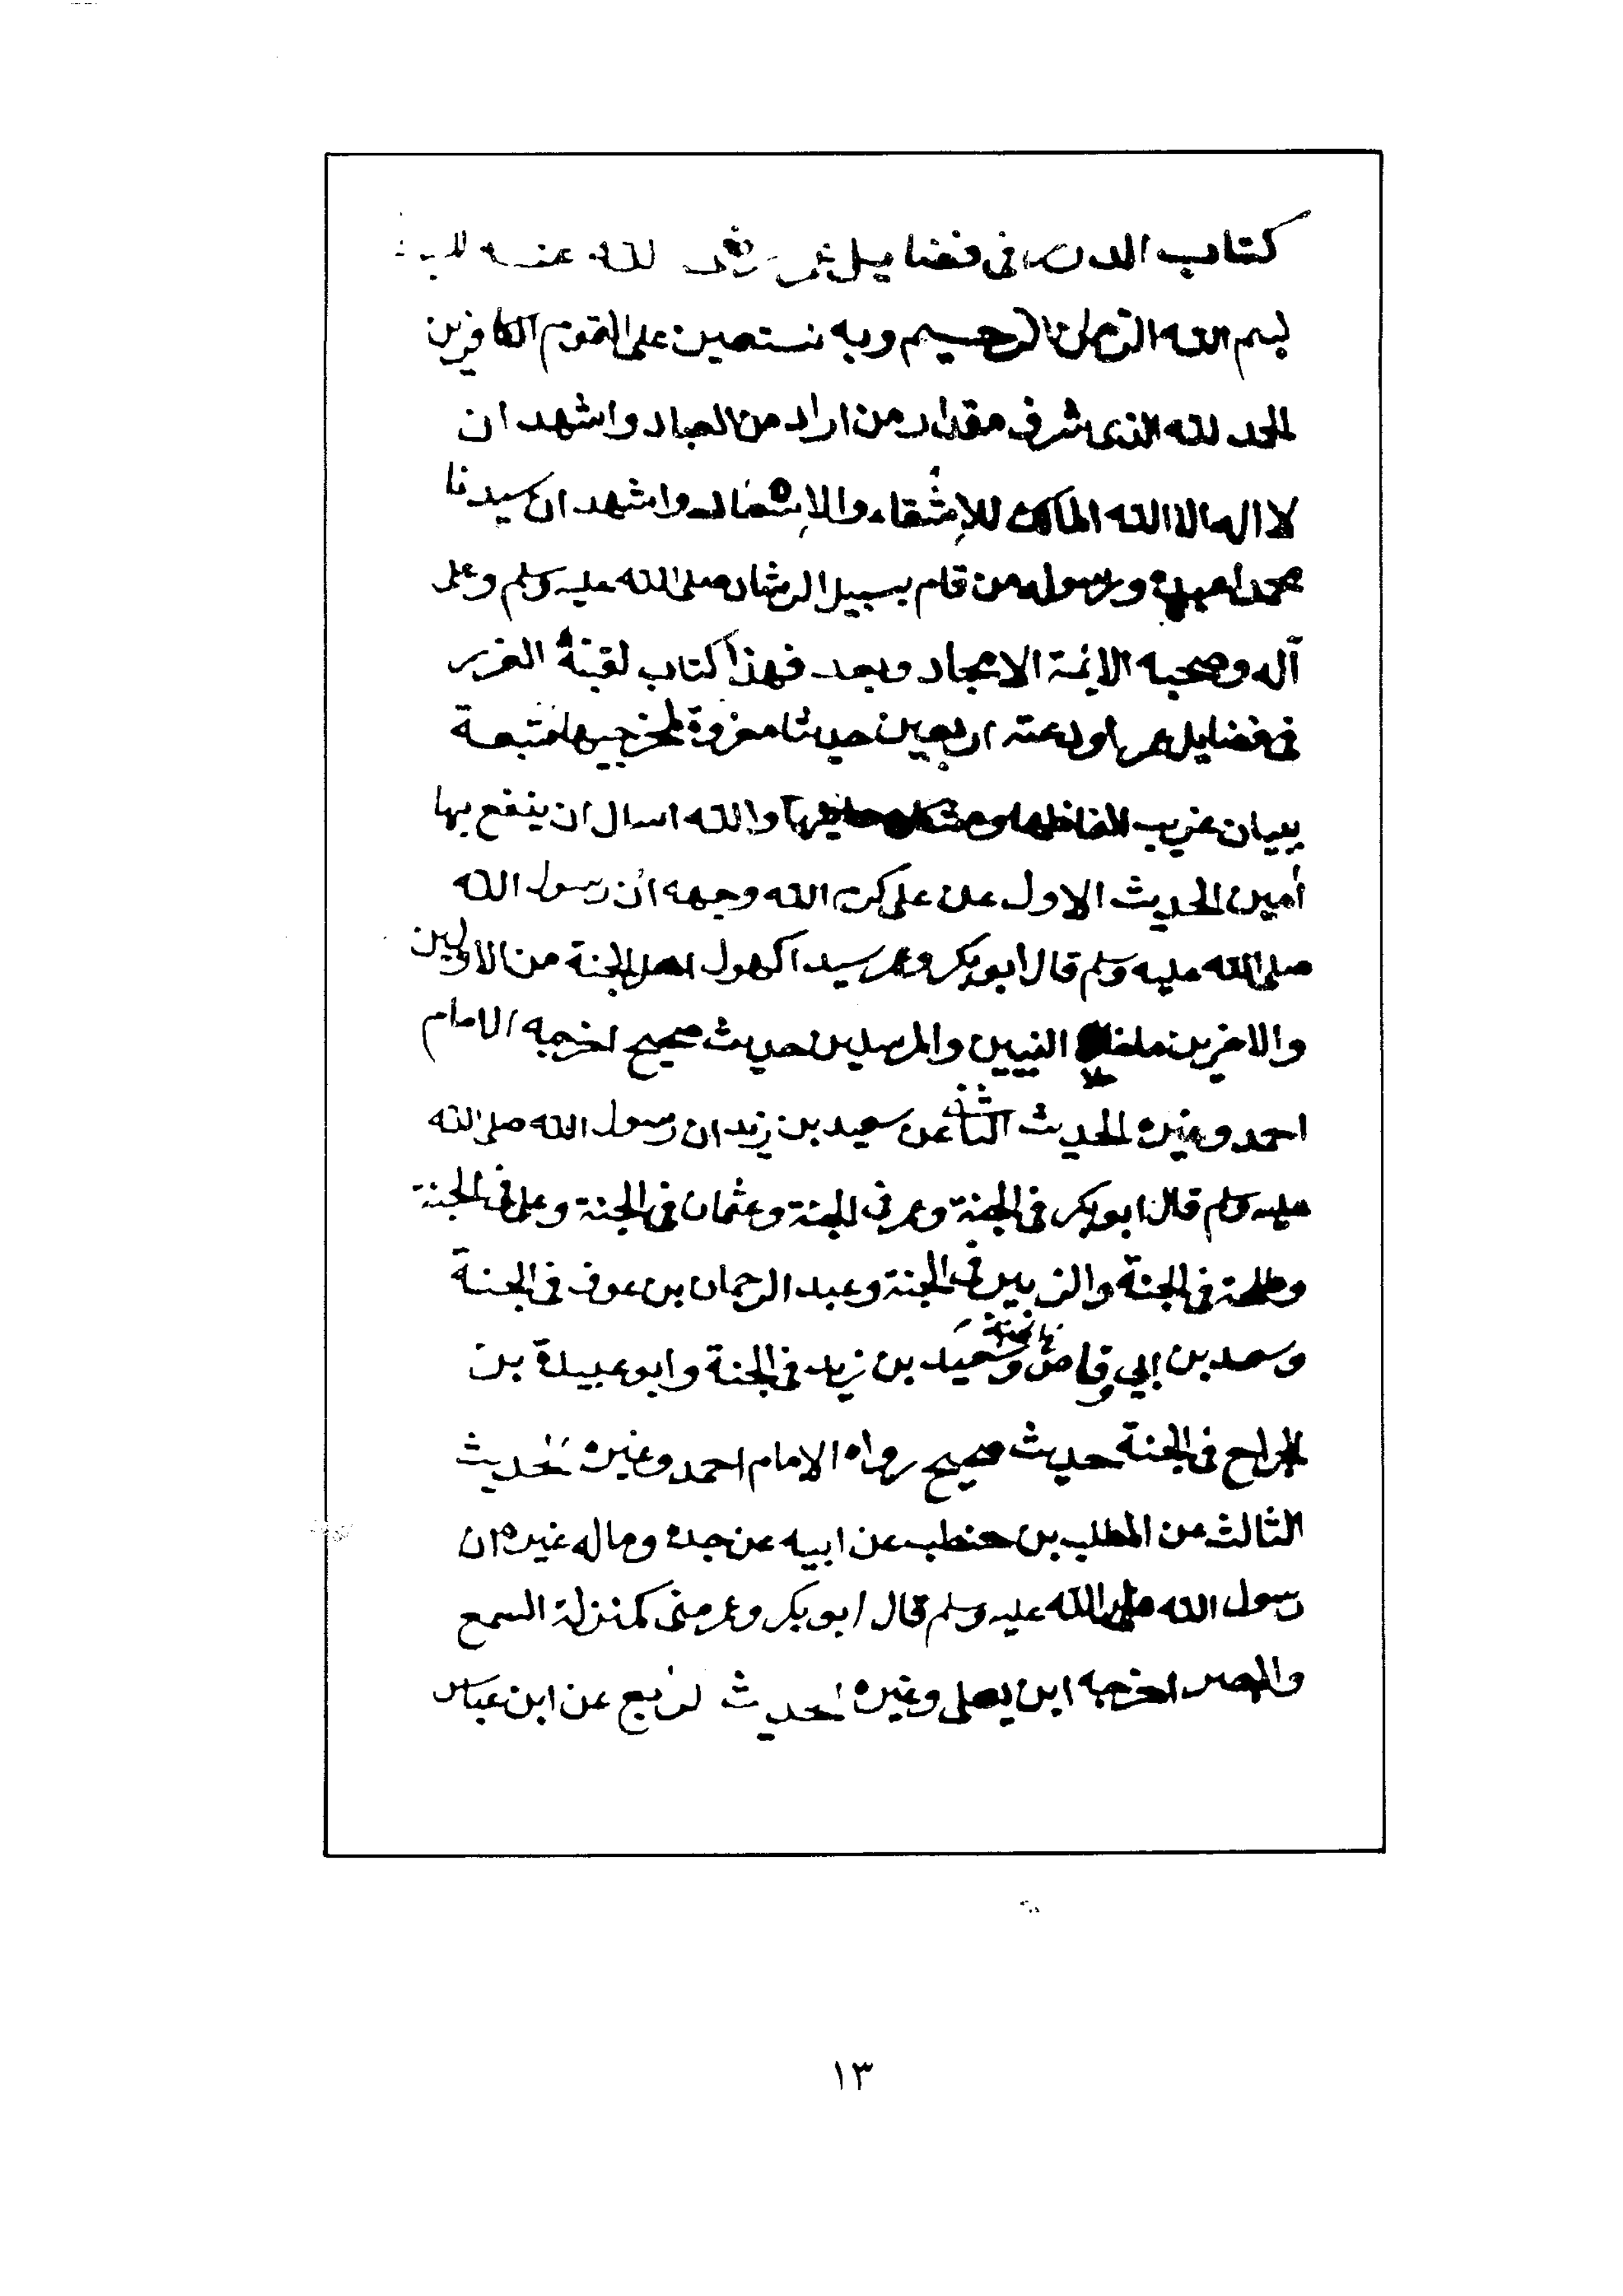 كتاب الدرر في فضايل عمر رضي الله عنه
بسم الله الرحمن الرحيم وبه نستعين على القوم الكافرين
الحمد لله الذي شرف مقدار من اراد من العباد واشهد ان
لا اله الا الله المالك للاشقاء والاسعاد واشهد ان سيدنا
محمدا عبده ورسوله من قام بسبيل الرشاد صلى الله عليه وسلم وعلى
آله وصحبه الائمة الامجاد وبعد فهذا كتاب لقبته الغرر
في فضايل عمر اودعته اربعين حديثا معزوة لمخرجيها متبعة
ببيان غريب الفاظها ومشكل والله اسال ان ينفع بها
أمين الحديث الاول عن علي كرم الله وجهه ان رسول الله
صلى الله عليه وسلم قال ابو بكر وعمر سيدا كهول اهل الجنة من الاولين
والاخرين ماخلا النبيين والمرسلين حديث صحيح اخرجه الامام
احمد وغيره الحديث الثاني عن سعيد بن زيد ان رسول الله صلى الله
عليه وسلم قال ابو بكر في الجنة وعمر في الجنة وعثمان في الجنة وعلى في الجنة
وطلحة في الجنة والزبير في الجنة وعبد الرحمان بن عوف في الجنة
وسعد بن ابي وقاص في الجنة وسعيد بن زيد في الجنة وابو عبيدة بن
الجراح في الجنة حديث صحيح رواه الامام احمد وغيره الحديث
الثالث عن المطلب بن حنطب عن ابيه عن جده وماله غيره ان
رسول الله صلى الله عليه وسلم قال ابو بكر وعمر منى كمنزلة السمع
والبصر اخرجه ابن يعلى وغيره الحديث الرابع عن ابن عباس
١٣